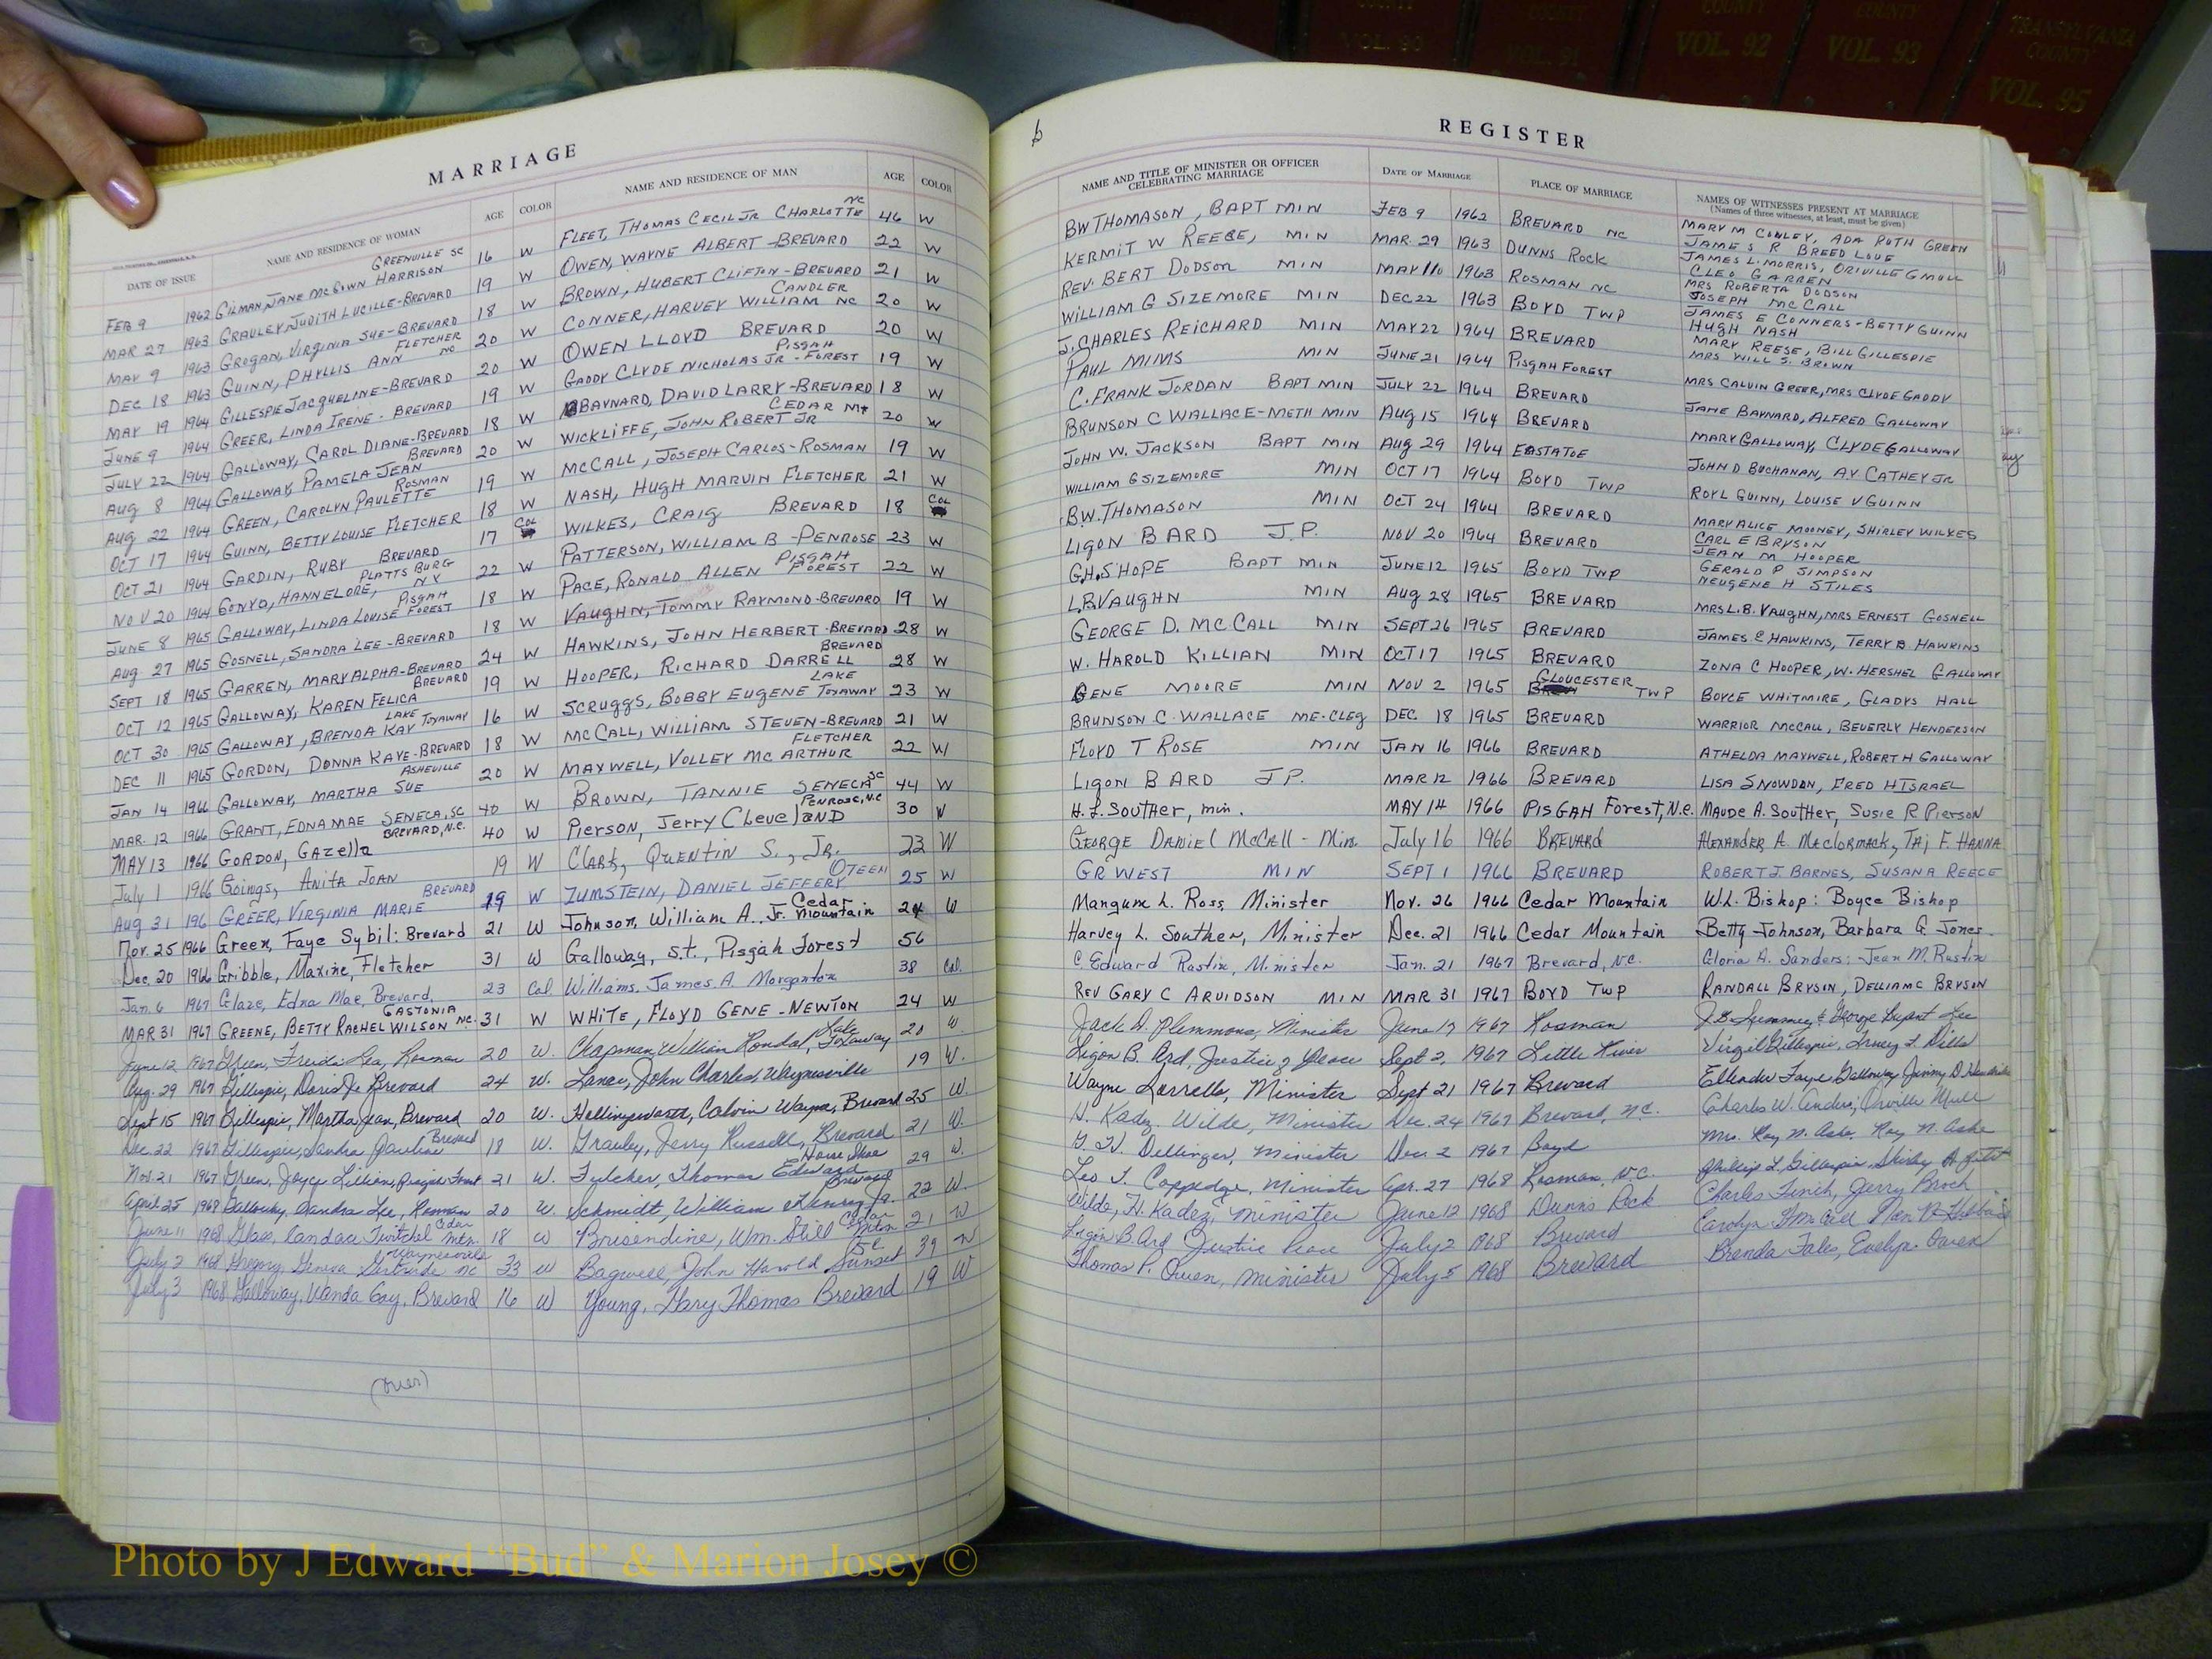 COUNTY
VOL. 90
COUNTY
VOL. 91
COUNTY
VOL. 92
COUNTY
VOL. 93
TRANSYLVANIA
COUNTY
VOL. 95
MARRIAGE
DATE OF ISSUE NAME AND RESIDENCE OF WOMAN AGE COLOR NAME AND RESIDENCE OF MAN AGE COLOR
FEB 9 1962 GILMAN, JANE McGOWN HARRISON GREENVILLE SC 16 W FLEET, THOMAS CECIL JR CHARLOTTE NC 46 W
MAR 27 1963 GRAULEY, JUDITH LUCILLE-BREVARD 19 W OWEN, WAYNE ALBERT - BREVARD 22 W
MAY 9 1963 GROGAN, VIRGINIA SUE-BREVARD 18 W BROWN, HUBERT CLIFTON-BREVARD 21 W
DEC 18 1963 GUINN, PHYLLIS ANN FLETCHER NC 20 W CONNER, HARVEY WILLIAM CANDLER NC 20 W
MAY 19 1964 GILLESPIE JACQUELINE-BREVARD 20 W OWEN LLOYD BREVARD 20 W
JUNE 9 1964 GREER, LINDA IRENE - BREVARD 19 W GADDY CLYDE NICHOLAS JR - PISGAH FOREST 19 W
JULY 22 1964 GALLOWAY, CAROL DIANE-BREVARD 18 W BAYNARD, DAVID LARRY-BREVARD 18 W
Aug 8 1964 GALLOWAY, PAMELA JEAN BREVARD 20 W WICKLIFFE, JOHN ROBERT JR CEDAR MT 20 W
Aug 22 1964 GREEN, CAROLYN PAULETTE ROSMAN 19 W MCCALL, JOSEPH CARLOS-ROSMAN 19 W
OCT 17 1964 GUINN, BETTY LOUISE FLETCHER 18 W NASH, HUGH MARVIN FLETCHER 21 W
OCT 21 1964 GARDIN, RUBY BREVARD 17 COL WILKES, CRAIG BREVARD 18 COL
NOV 20 1964 GONYO, HANNELORE, PLATTSBURG NY 22 W PATTERSON, WILLIAM B - PENROSE 23 W
JUNE 8 1965 GALLOWAY, LINDA LOUISE PISGAH FOREST 18 W PACE, RONALD ALLEN PISGAH FOREST 22 W
Aug 27 1965 GOSNELL, SANDRA LEE - BREVARD 18 W VAUGHN, TOMMY RAYMOND-BREVARD 19 W
SEPT 18 1965 GARREN, MARY ALPHA-BREVARD 24 W HAWKINS, JOHN HERBERT-BREVARD 28 W
OCT 12 1965 GALLOWAY, KAREN FELICA BREVARD 19 W HOOPER, RICHARD DARRELL BREVARD 28 W
OCT 30 1965 GALLOWAY, BRENDA KAY LAKE TOXAWAY 16 W SCRUGGS, BOBBY EUGENE LAKE TOXAWAY 23 W
DEC 11 1965 GORDON, DONNA KAYE-BREVARD 18 W MCCALL, WILLIAM STEVEN-BREVARD 21 W
JAN 14 1966 GALLOWAY, MARTHA SUE ASHEVILLE 20 W MAXWELL, VOLLEY MCARTHUR FLETCHER 22 W
MAR. 12 1966 GRANT, EDNA MAE SENECA, SC 40 W BROWN, TANNIE SENECA SC 44 W
MAY 13 1966 GORDON, GAZella BREVARD, N.C. 40 W Pierson, Jerry CleveLAND PENROSE, N.C 30 W
July 1 1966 Goings, Anita JOAN 19 W Clark, Quentin S., JR. 23 W
Aug 31 196 GREER, VIRGINIA MARIE BREVARD 19 W ZUMSTEIN, DANIEL JEFFERY OTEEN 25 W
Nov. 25 1966 Green, Faye Sybil: Brevard 21 W Johnson, William A. Jr. Cedar Mountain 24 W
Dec. 20 1966 Gribble, Maxine, Fletcher 31 W Galloway, S.T., Pisgah Forest 56
Jan. 6 1967 Glaze, Edna Mae, Brevard, 23 Col Williams, James A. Morganton 38 Col.
MAR 31 1967 GREENE, BETTY RACHEL WILSON GASTONIA NC. 31 W WHITE, FLOYD GENE - NEWTON 24 W
June 12 1967 Green, Freida Lea, Rosman 20 W. Chapman, William Randal, Lake Toxaway 20 W.
Aug. 29 1967 Gillespie, Doris Je Brevard 24 W. Lance, John Charles, Waynesville 19 W.
Sept 15 1967 Gillespie, Martha Jean, Brevard 20 W. Hollingsworth, Calvin Wayne, Brevard 25 W.
Dec. 22 1967 Gillespie, Sandra Pauline Brevard 18 W. Grauley, Jerry Russell, Brevard 21 W.
Nov. 21 1967 Green, Joyce Lillian, Pisgah Forest 21 W. Fulcher, Thomas Edward Horse Shoe 29 W.
April 25 1968 Galloway, Sandra Lee, Rosman 20 W. Schmidt, William Henry Jr. Brevard 22 W.
June 11 1968 Glass, Candace Twitchel Cedar Mtn. 18 W Brisendine, Wm. Still Cedar Mtn 21 W
July 2 1968 Gregory, Geneva Gertrude Waynesville NC 33 W Bagwell, John Harold Sunset SC 39 W
July 3 1968 Galloway, Wanda Gay, Brevard 16 W Young, Gary Thomas Brevard 19 W
(over)
b
REGISTER
NAME AND TITLE OF MINISTER OR OFFICER CELEBRATING MARRIAGE DATE OF MARRIAGE PLACE OF MARRIAGE NAMES OF WITNESSES PRESENT AT MARRIAGE
(Names of three witnesses, at least, must be given)
BW THOMASON, BAPT MIN FEB 9 1962 BREVARD NC MARY M CONLEY, ADA RUTH GREEN
JAMES R BREEDLOVE
KERMIT W REECE, MIN MAR. 29 1963 DUNNS ROCK JAMES L. MORRIS, ORIVILLE G MULL
CLEO GARREN
REV. BERT DODSON MIN MAY 11 1963 ROSMAN NC MRS ROBERTA DODSON
JOSEPH MCCALL
WILLIAM G SIZEMORE MIN DEC 22 1963 BOYD TWP JAMES E CONNERS-BETTY GUINN
HUGH NASH
J. CHARLES REICHARD MIN MAY 22 1964 BREVARD MARY REESE, BILL GILLESPIE
MRS WILL S. BROWN
PAUL MIMS MIN JUNE 21 1964 PISGAH FOREST
C. FRANK JORDAN BAPT MIN JULY 22 1964 BREVARD MRS CALVIN GREER, MRS CLYDE GADDY
BRUNSON C WALLACE-METH MIN Aug 15 1964 BREVARD JANE BAYNARD, ALFRED GALLOWAY
JOHN W. JACKSON BAPT MIN Aug 29 1964 EASTATOE MARY GALLOWAY, CLYDE GALLOWAY
WILLIAM G SIZEMORE MIN OCT 17 1964 BOYD TWP JOHN D BUCHANAN, A.Y. CATHEY JR
B.W. THOMASON MIN OCT 24 1964 BREVARD ROY L GUINN, LOUISE V GUINN
LIGON B ARD J.P. NOV 20 1964 BREVARD MARY ALICE MOONEY, SHIRLEY WILKES
CARL E BRYSON
JEAN M HOOPER
G.H. SHOPE BAPT MIN JUNE 12 1965 BOYD TWP GERALD P SIMPSON
NEUGENE H STILES
L.B. VAUGHN MIN Aug 28 1965 BREVARD MRS L.B. VAUGHN, MRS ERNEST GOSNELL
GEORGE D. MCCALL MIN SEPT 26 1965 BREVARD JAMES E HAWKINS, TERRY B HAWKINS
W. HAROLD KILLIAN MIN OCT 17 1965 BREVARD ZONA C HOOPER, W. HERSHEL GALLOWAY
GENE MOORE MIN NOV 2 1965 GLOUCESTER TWP BOYCE WHITMIRE, GLADYS HALL
BRUNSON C. WALLACE ME-CLEG DEC. 18 1965 BREVARD WARRIOR MCCALL, BEVERLY HENDERSON
FLOYD T ROSE MIN JAN 16 1966 BREVARD ATHELDA MAXWELL, ROBERT H GALLOWAY
LIGON B ARD J.P. MAR 12 1966 BREVARD LISA SNOWDON, FRED H ISRAEL
H.L. SOUTHER, min. MAY 14 1966 PISGAH Forest, N.C. MAUDE A. SOUTHER, SUSIE R. PIERSON
GEORGE DANIEL McCALL - Min. July 16 1966 BREVARD ALEXANDER A. MacCORMACK, TAj F. HANNA
GR WEST MIN SEPT 1 1966 BREVARD ROBERT J. BARNES, SUSAN A REECE
Mangum L. Ross, Minister Nov. 26 1966 Cedar Mountain W.L. Bishop: Boyce Bishop
Harvey L. Souther, Minister Dec. 21 1966 Cedar Mountain Betty Johnson, Barbara G. Jones
C. Edward Rustin, Minister Jan. 21 1967 Brevard, N.C. Gloria A. Sanders: Jean M. Rustin
REV GARY C ARVIDSON MIN MAR 31 1967 BOYD TWP RANDALL BRYSON, DELLIA MC BRYSON
Jack D. Plemmons, Minister June 17 1967 Rosman
Ligon B. Ard, Justice of Peace Sept 2, 1967 Little River Virgil Gillespie,
Wayne Sorrells, Minister Sept 21 1967 Brevard Faye Galloway, Jimmy D.
H. Kadez Wilde, Minister Dec. 24 1967 Brevard, N.C. Charles W. Anders; Orville Mull
Dellinger, Minister Dec 2 1967 Boyd Mrs. Roy N. Ashe, Roy N. Ashe
Leo T. Coppedge, Minister Apr. 27 1968 Rosman, N.C. Phillip L. Gillespie, Shirley
Wilde, H. Kadez, minister June 12 1968 Dunn's Rock Charles Finch, Jerry Brock
Ligon B Ard Justice Peace July 2 1968 Brevard Carolyn
Thomas P. Owen, minister July 5 1968 Brevard Brenda Fales, Evelyn Owen
Photo by J Edward "Bud" & Marion Josey ©